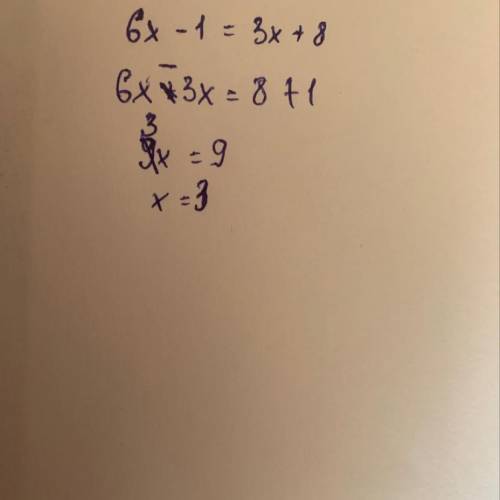 6x - 1 = 3x + 8
6x - 3x = 8 + 1
3x = 9
x = 3